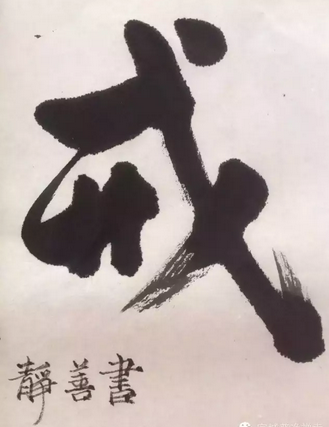 戒
靜善書